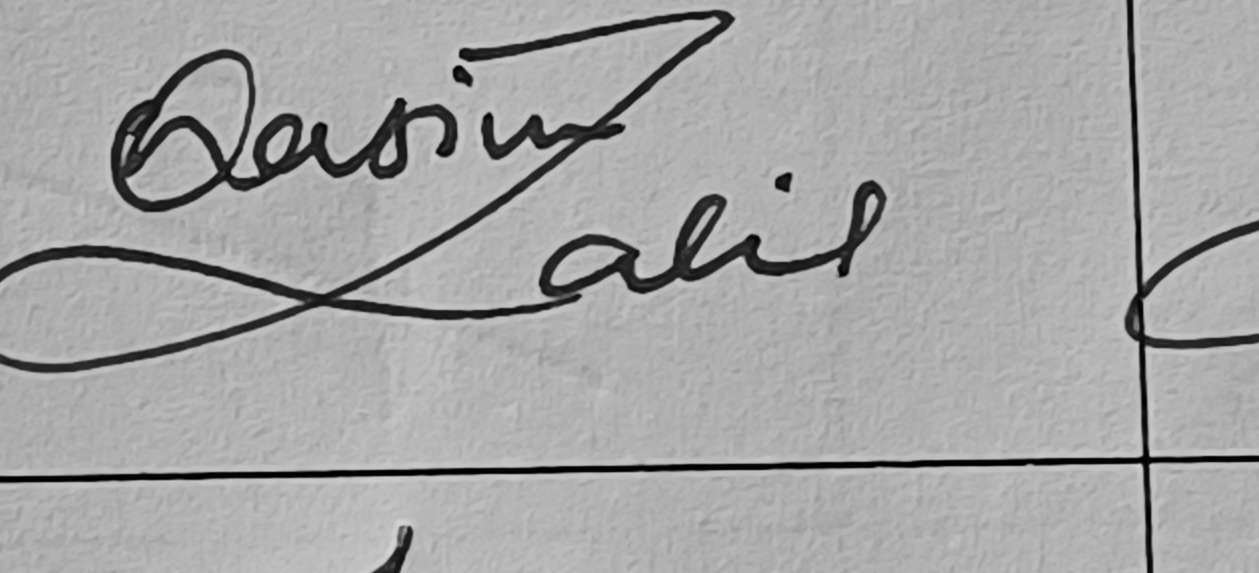 Qasim
Zahid